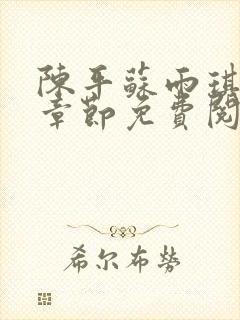 陳平蘇雨琪
章節免費閱
希尔布勞